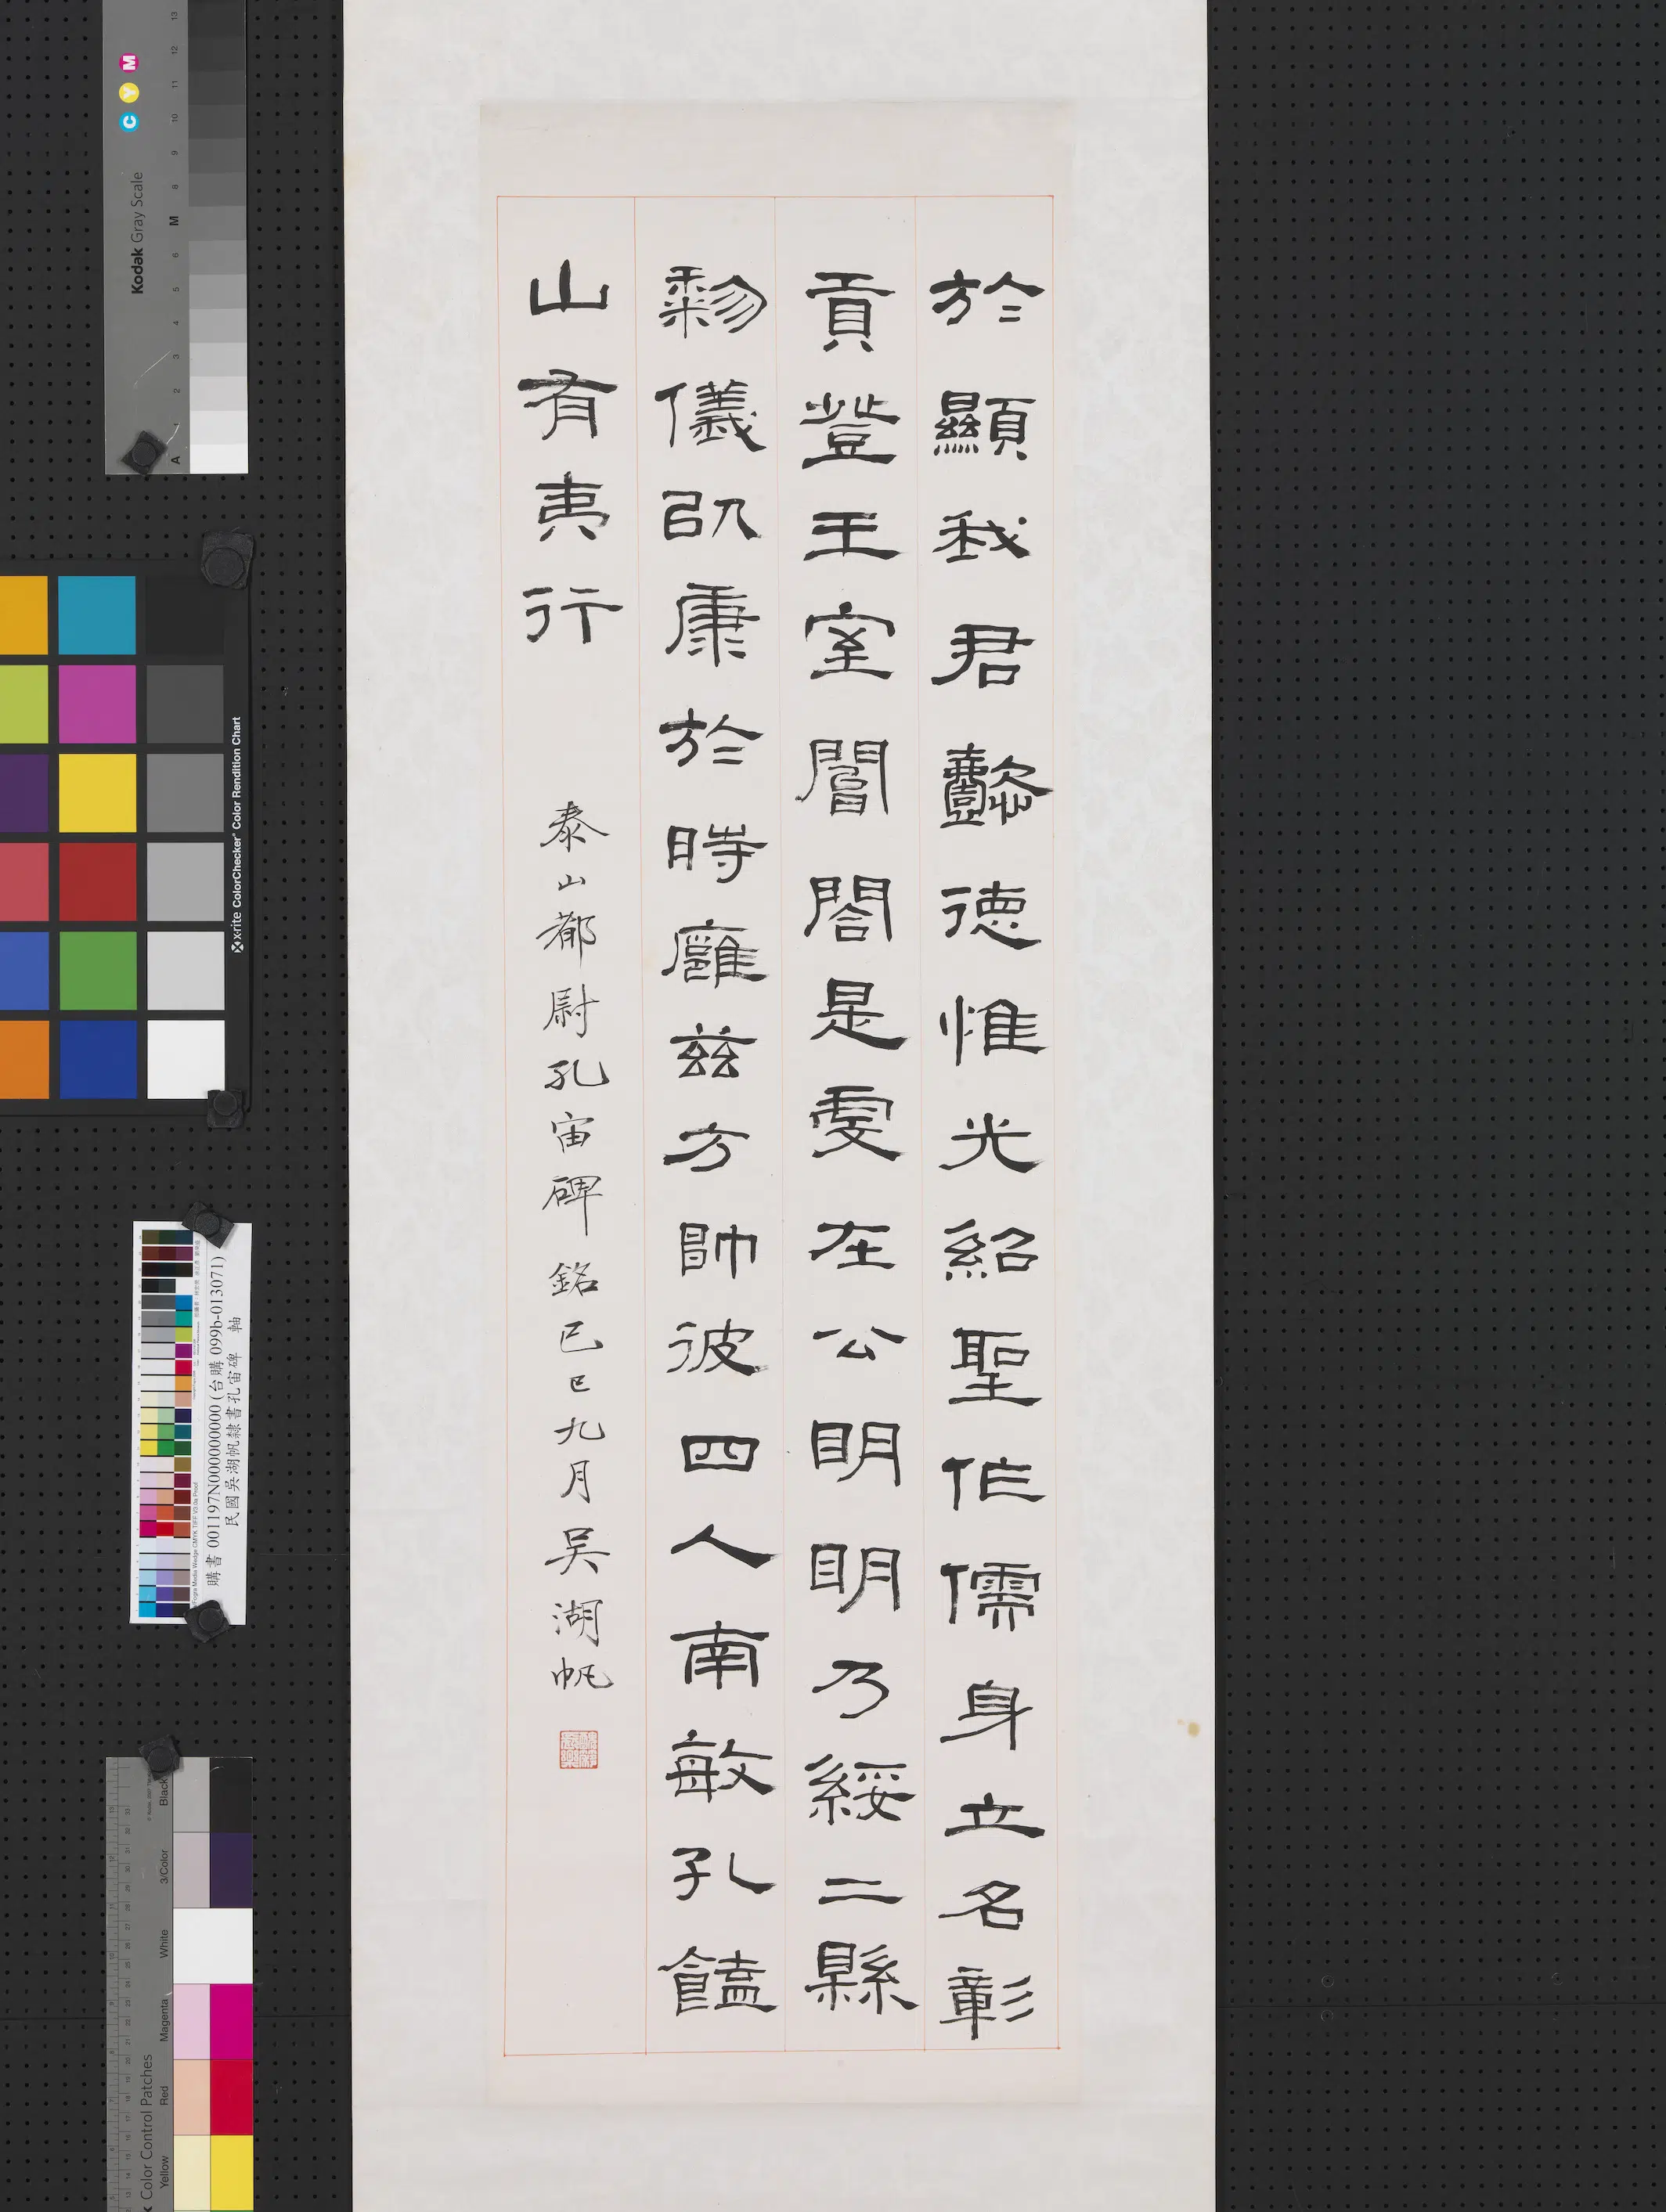 於顯我君懿德惟光紹聖作儒身立名彰
貢登王室閽閤是虔在公明明乃綏二縣
黎儀以康於時廱茲方帥彼四人南敏孔饁
山有夷行
泰山都尉孔宙碑銘己巳九月吳湖帆
C Y M
Kodak Gray Scale
x-rite ColorChecker Color Rendition Chart
購書 001197N000000000 (台購 099b-013071)
民國吳湖帆隸書孔宙碑 軸
Color Control Patches
Black
3/Color
White
Magenta
Red
Yellow